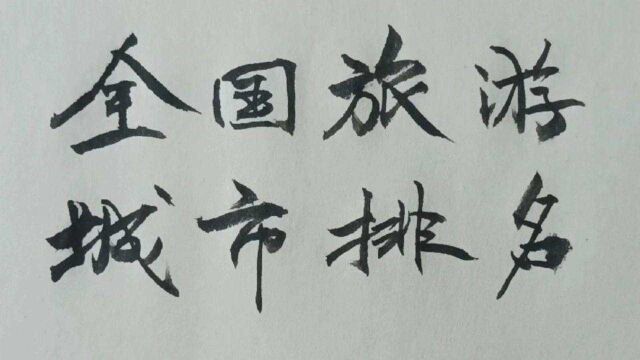 全国旅游
城市排名